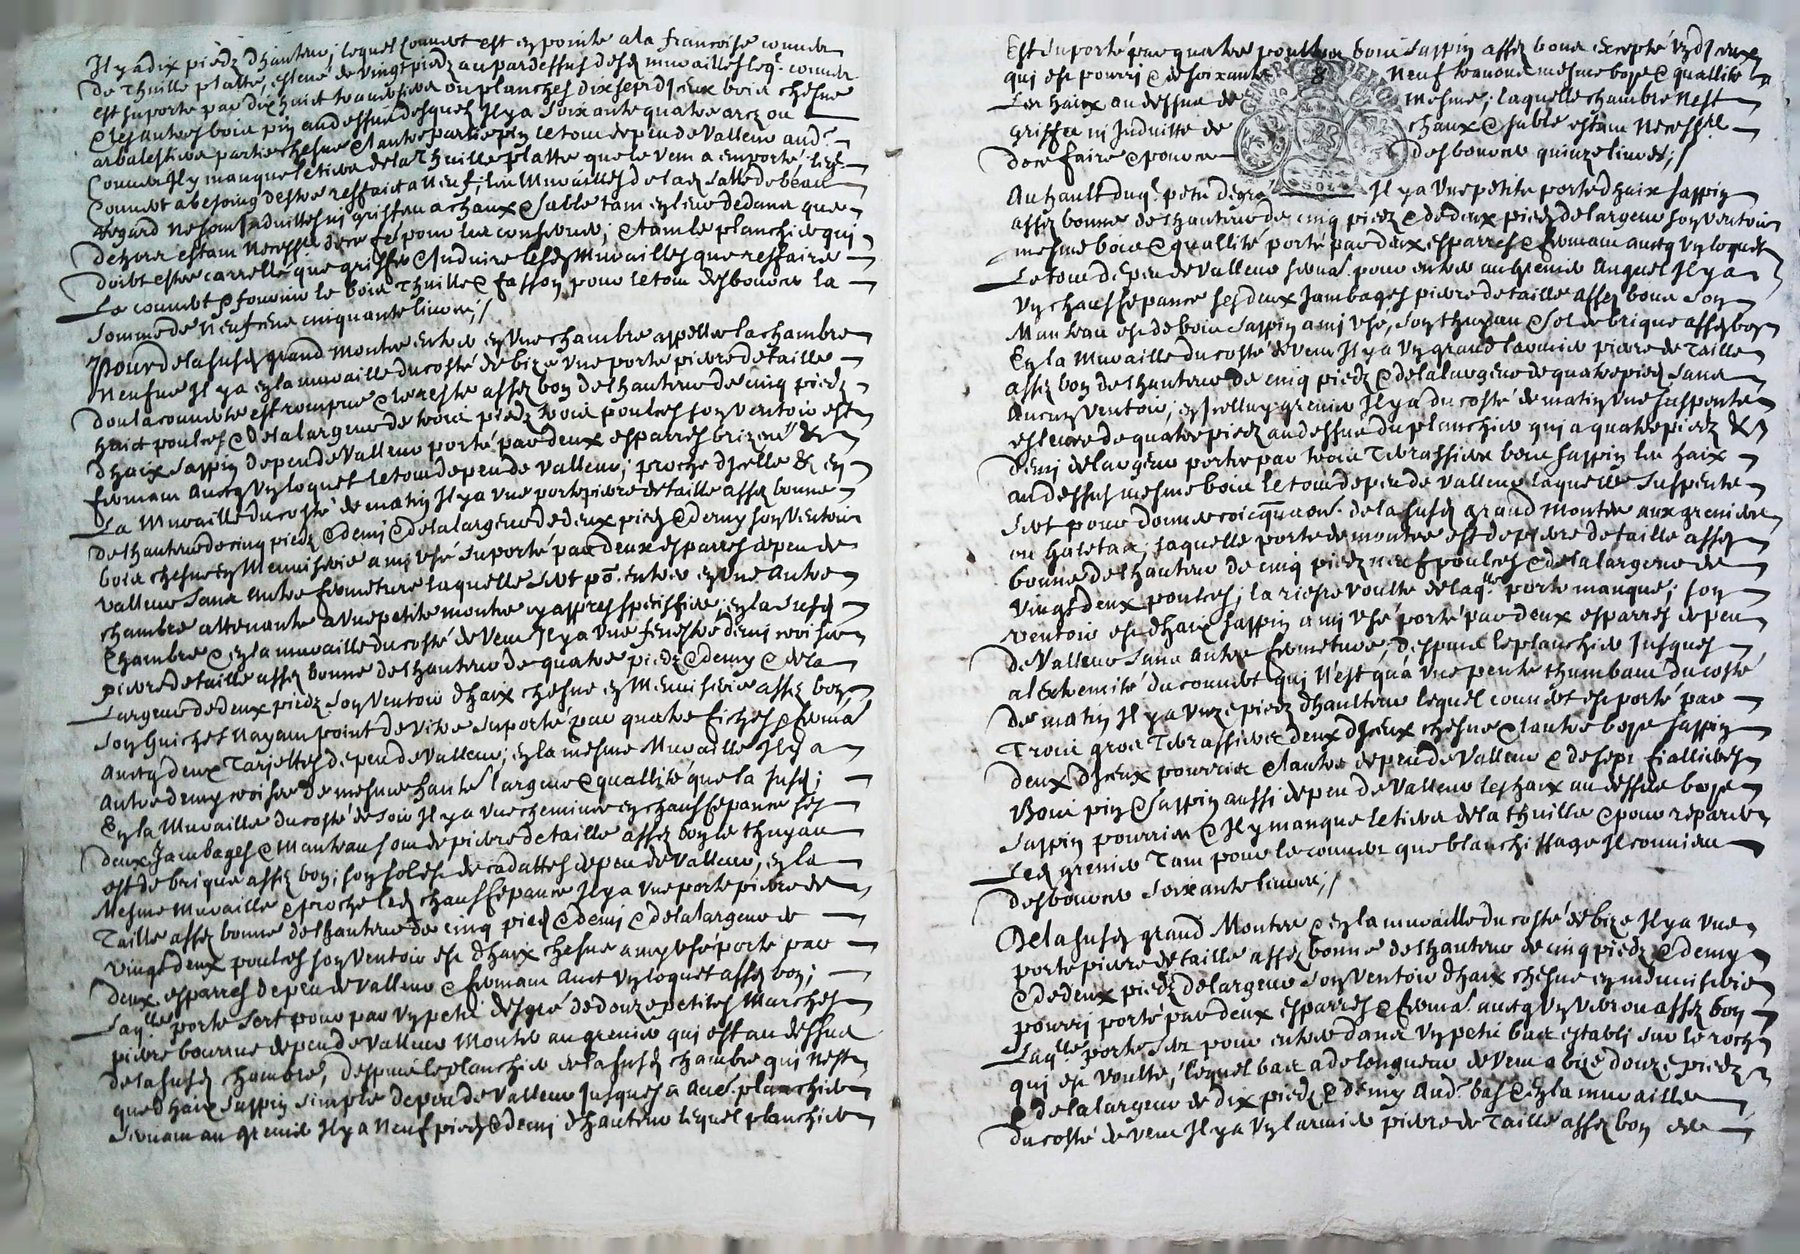 Il y a dix piedz d'hauteur, lequel couvert est en pointe a la francoise couver
de thuille platte, eslevé de vingt piedz au pardessus desd. murailles leq. couver
est suporté par dix huict travaisons ou planches dix sept d'Iceux bois chesne
& les autres bois pin au dessus desquels Il y a soixante quatre arez ou
arbalestiers partie chesne & lautre partie pin le tout de peu de valleur aud.
couver Il y manque le tiers de la thuille platte que le vent a emporté, led.
couvert a besoing destre reffaict a neuf, les murailles de lad. salle de beau
regard ne sont Induittes ny griffeu a chaux & sable tant en leur dedans que
dehors estant necessre de ce fe. pour leur conserver, & tant le planchier qui
doibt estre carrellé que griffer & Induire lesd. murailles que reffaire
le couvert & fournir le bois thuille & fasson pour le tout desbourcer la
somme de neuf cens cinquante livres,//
Pour de la susd. grand montee entrer en une chambre appellee la chambre
neufue Il y a en la muraille du costé de bize une porte pierre de taille
dont la couverte est rompue & le reste assez bon de lhauteur de cinq piedz
huict poulces & de la largeur de trois piedz trois poulces son ventoir est
dhaix sappin de peu de valleur porté par deux esparres brizeur &
fermant avecq un loquet le tout de peu de valleur, proche dicelle & en
la muraille du costé de matin Il y a une porte pierre de taille assez bonne
de lhauteur de cinq piedz & demi & de la largeur de deux piedz & demy son ventoir
bois chesne en menuiserie a mi usé suporté par deux esparres de peu de
valleur sans autre fermeture laquelle sert po. entrer en une autre
chambre attenante a une petite montee cy apres speciffiee, en la susd.
chambre & en la muraille du costé de vent Il y a une fenestre demi croisee
pierre de taille assez bonne de lhauteur de quatre piedz & demy & de la
largeur de deux piedz son ventoir dhaix chesne en menuiserie assez bon
son guichet nayant point de vitre suporté par quatre fiches & fermat
avecq deux tarjettes de peu de valleur, en la mesme muraille Il y a
autre demy croisee de mesme hautr. largeur & quallité que la susd.
En la muraille du costé de soir Il y a une cheminee en chauffepance ses
deux Jambages & manteau sont de pierre de taille assez bon le thuyau
est de brique assez bon, son sol est de cadattes de peu de valleur, en la
mesme muraille & proche led. chauffepance Il y a une porte pierre de
taille assez bonne de lhauteur de cinq piedz & demi & de la largeur de
vingt deux poulces son ventoir est dhaix chesne a my usé porté par
deux esparres de peu de valleur & fermant avec un loquet assez bon,
laqlle porte sert pour par un petit degré de douze petites marches
pierre bourrue de peu de valleur monter au grenier qui est au dessus
de la susd. chambre, despuis le planchier de la susd. chambre qui nest
que dhaix sappin simple de peu de valleur jusques a aut. planchier
servant au grenier Il y a neuf piedz & demi dhauteur lequel planchier
Est suporté par quatre poultres bois sappin assez bons excepté un d'Iceux
qui est pourri & de soixante neuf travons mesme boys & quallité
les haix au dessus de mesme, laquelle chambre nest
griffeu ni Induitte de chaux & sable estant necessre
de ce faire & pour ce desbourcer quinze livres,//
Au hault dud. petit degré Il y a une petite porte dhaix sappin
assez bonne de lhauteur de cinq piedz & de deux piedz de largeur son ventoir
mesme bois & quallité porté par deux esparres & fermant avecq un loquet
le tout de peu de valleur servat. pour entrer au grenier auquel Il y a
un chauffepance ses deux Jambages pierre de taille assez bons son
manteau est de bois sappin a mi usé, son thuyau & sol de brique assez bon
En la muraille du costé de vent Il y a un grand larmier pierre de taille
assez bon de lhauteur de cinq piedz & de la largeur de quatre piedz sans
aucun ventoir, en Icelluy grenier Il y a du costé de matin une suspente
eslevee de quatre piedz au dessus du planchier qui a quatre piedz &
demi de largeur portee par trois tirassiers bois sappin les haix
au dessus mesme bois le tout de peu de valleur laquelle suspente
sert pour donner de la susd. grand montee aux greniers
ou galetas, laquelle porte de montee est de pierre de taille assez
bonne de lhauteur de cinq piedz neuf poulces & de la largeur de
vingt deux poulces, la riere voulte de laqlle porte manque, son
ventoir est dhaix sappin a mi usé porté par deux esparres de peu
de valleur sans autre fermeture, despuis le planchier jusques
a l'extremité du couvert qui n'est qu'a une pente thumbant du costé
de matin Il y a unze piedz dhaulteur lequel couvert est porté par
trois gros tirassiers deux d'Iceux chesne & lautre boys sappin
deux d'Iceux pourris & lautre de peu de valleur & de sept fiallieres
bois pin & sappin aussi de peu de valleur les haix au dessus boys
sappin pourris & Il y manque le tiers de la thuille & pour reparer
led. grenier tant pour le couvert que blanchissage Il convient
desbourcer soixante livres,//
De la susd. grand montee & en la muraille du costé de bize Il y a une
porte pierre de taille assez bonne de lhauteur de cinq piedz & demy
& de deux piedz de largeur son ventoir dhaix chesne en menuiserie
pourri porté par deux esparres & fermat. avecq un verrou assez bon
laqlle porte sert pour entrer dans un petit bas establi sur le roch
qui est voulté, lequel bas a de longueur de vent a bize douze piedz
& de la largeur de dix piedz & demy aud. bas & en la muraille
du costé de vent Il y a un larmier pierre de taille assez bon de